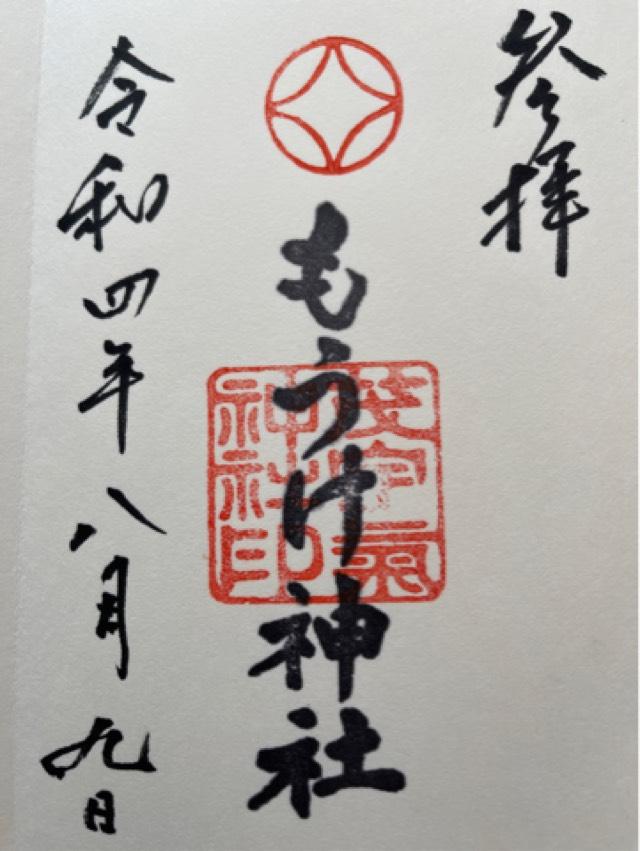 参拝
もうけ神社
神社印
令和四年八月九日